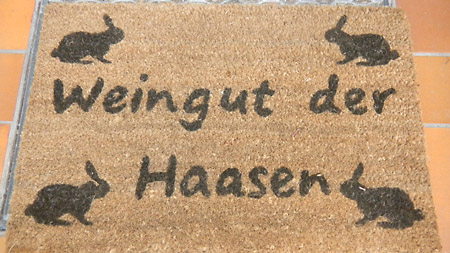 Weingut der
Haasen